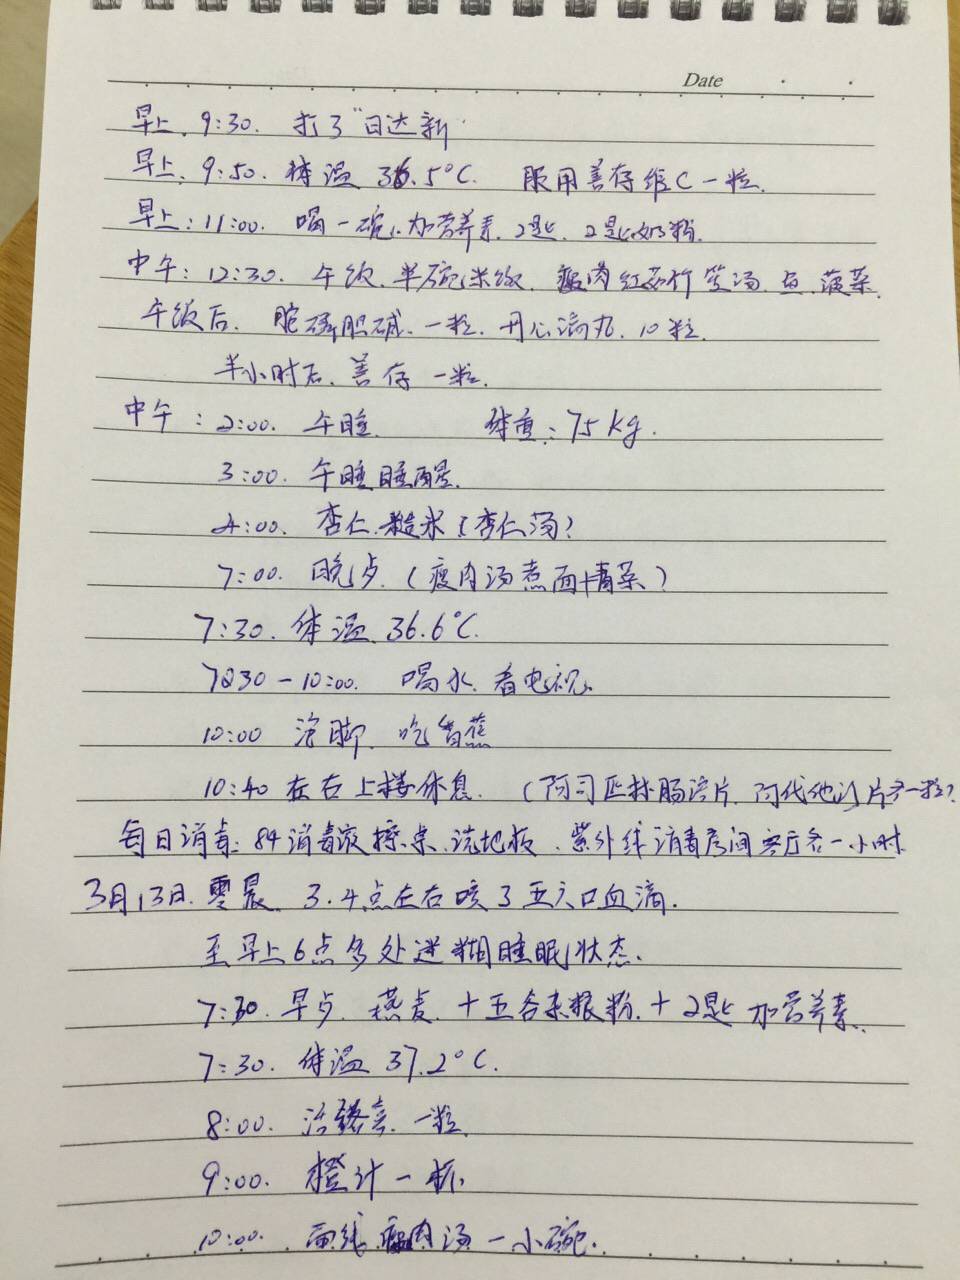 Date
早上. 9:30. 打了"日达新"
早上. 9:50. 体温 36.5°C. 服用善存维C一粒.
早上: 11:00. 喝一碗 加营养素. 2匙. 2匙奶粉.
中午: 12:30. 午饭. 半碗米饭. 瘦肉红菇竹笙汤. 鱼. 菠菜.
午饭后. 胞磷胆碱. 一粒. 丹心滴丸. 10粒.
半小时后. 善存 一粒.
中午: 2:00. 午睡. 体重: 75kg.
3:00. 午睡睡醒.
4:00. 杏仁 糙米 (杏仁汤)
7:00. 晚点. (瘦肉汤煮面+青菜)
7:30. 体温 36.6°C.
7:30-10:00. 喝水. 看电视.
10:00 泡脚. 吃香蕉
10:40 左右上楼休息. (阿司匹林肠溶片. 阿伐他汀片各一粒)
每日消毒: 84消毒液擦桌.洗地板. 紫外线消毒房间客厅各一小时
3月13日. 零晨. 3.4点左右咳了五六口血滴.
至早上6点多处迷糊睡眠状态.
7:30. 早点. 燕麦+五谷杂粮粉+2匙加营养素.
7:30. 体温 37.2°C.
8:00. 一粒.
9:00. 橙汁一杯.
10:00. 面线瘦肉汤一小碗.